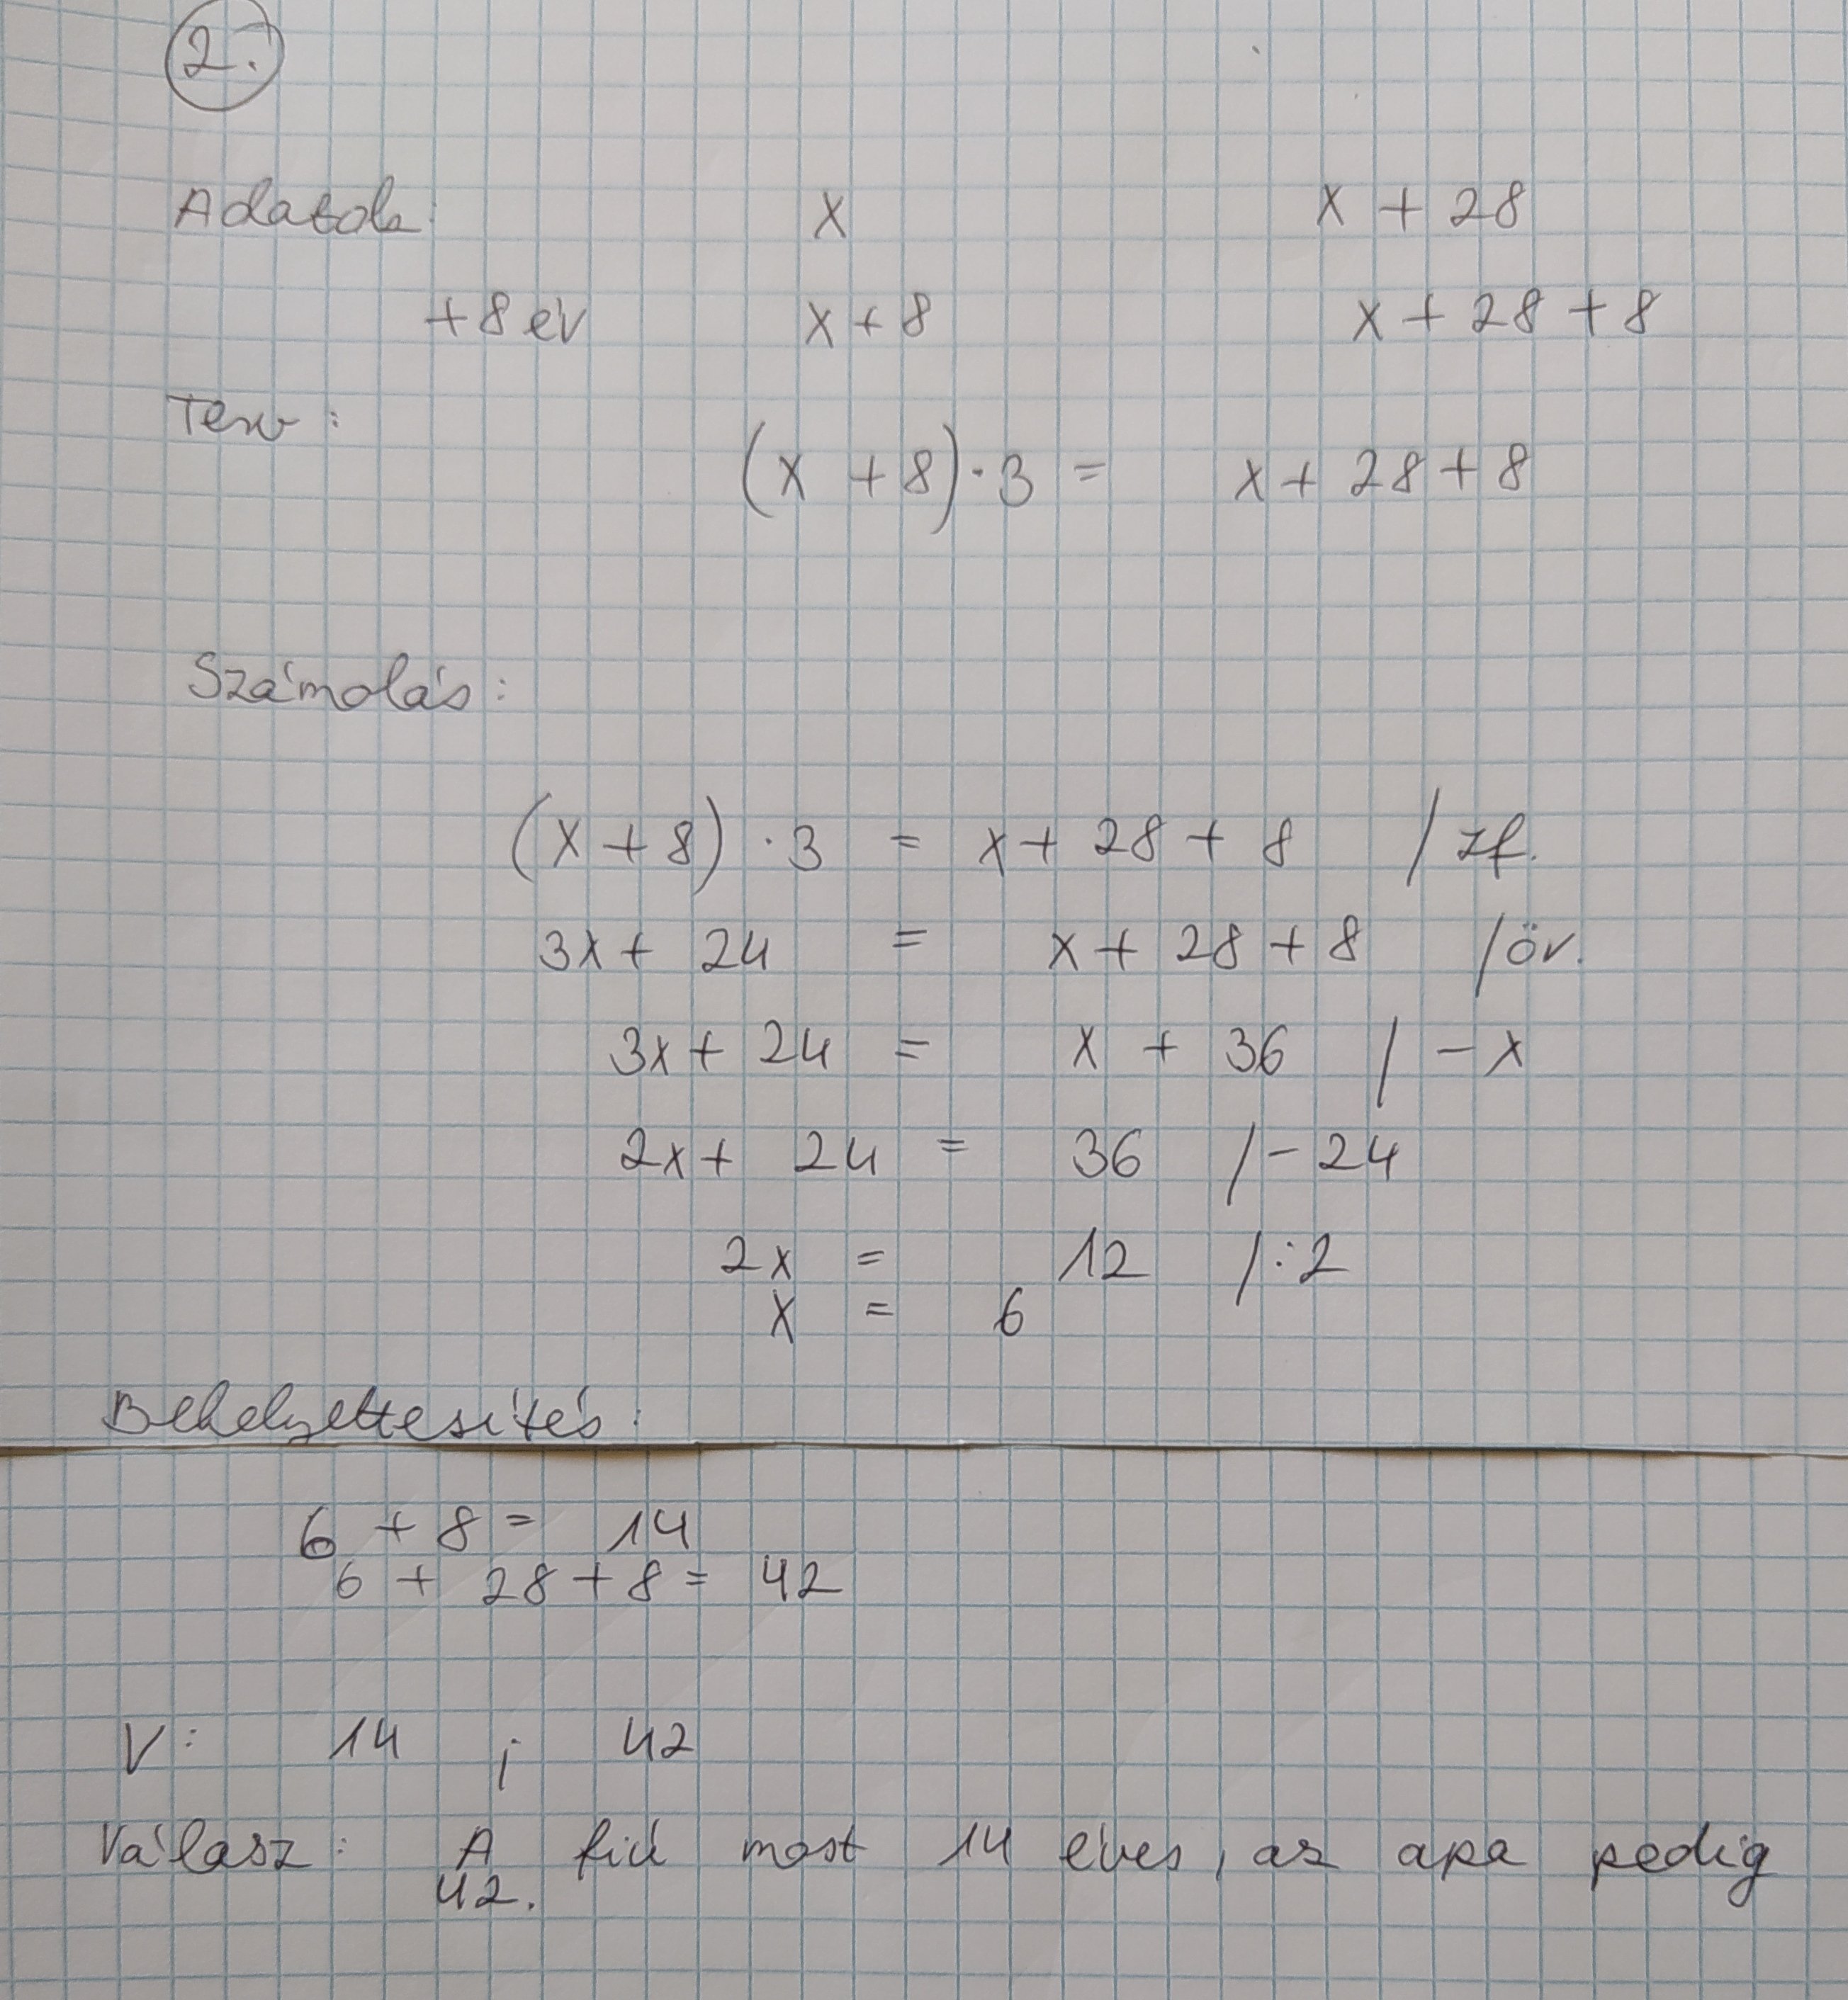 2.
Adatok: x x + 28
+8 év x + 8 x + 28 + 8
Terv:
(x + 8) · 3 = x + 28 + 8
Számolás:
(x + 8) · 3 = x + 28 + 8 / zf.
3x + 24 = x + 28 + 8 / öv.
3x + 24 = x + 36 / - x
2x + 24 = 36 / - 24
2x = 12 / : 2
x = 6
Behelyettesítés:
6 + 8 = 14
6 + 28 + 8 = 42
V: 14 ; 42
Válasz: A fiú most 14 éves, az apa pedig
42.